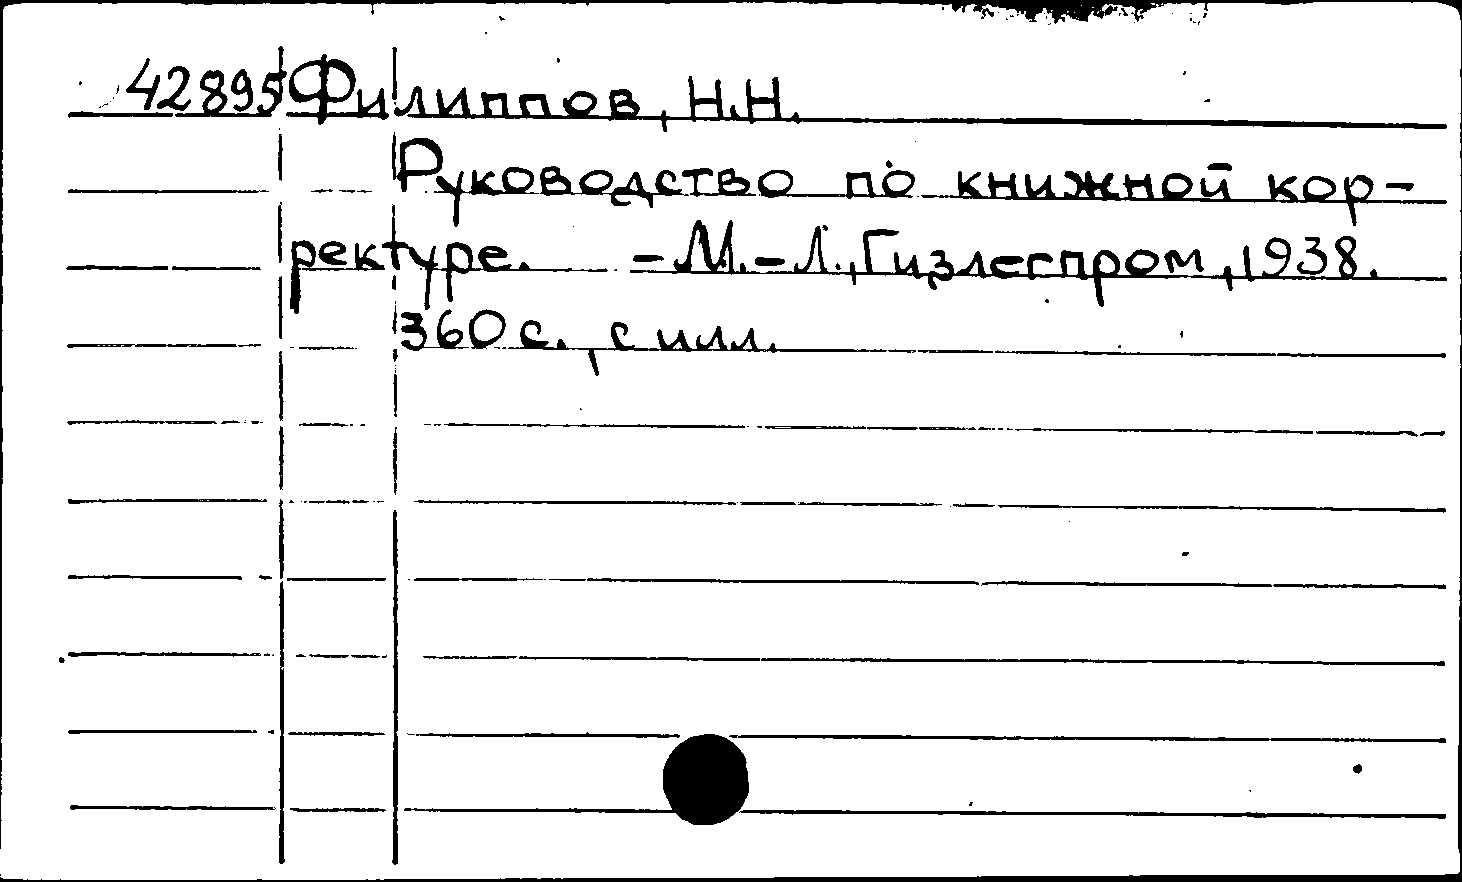 42895 Филиппов, Н.Н.
Руководство по книжной кор-
ректуре. - М.-Л., Гизлегпром, 1938.
360 с., с илл.